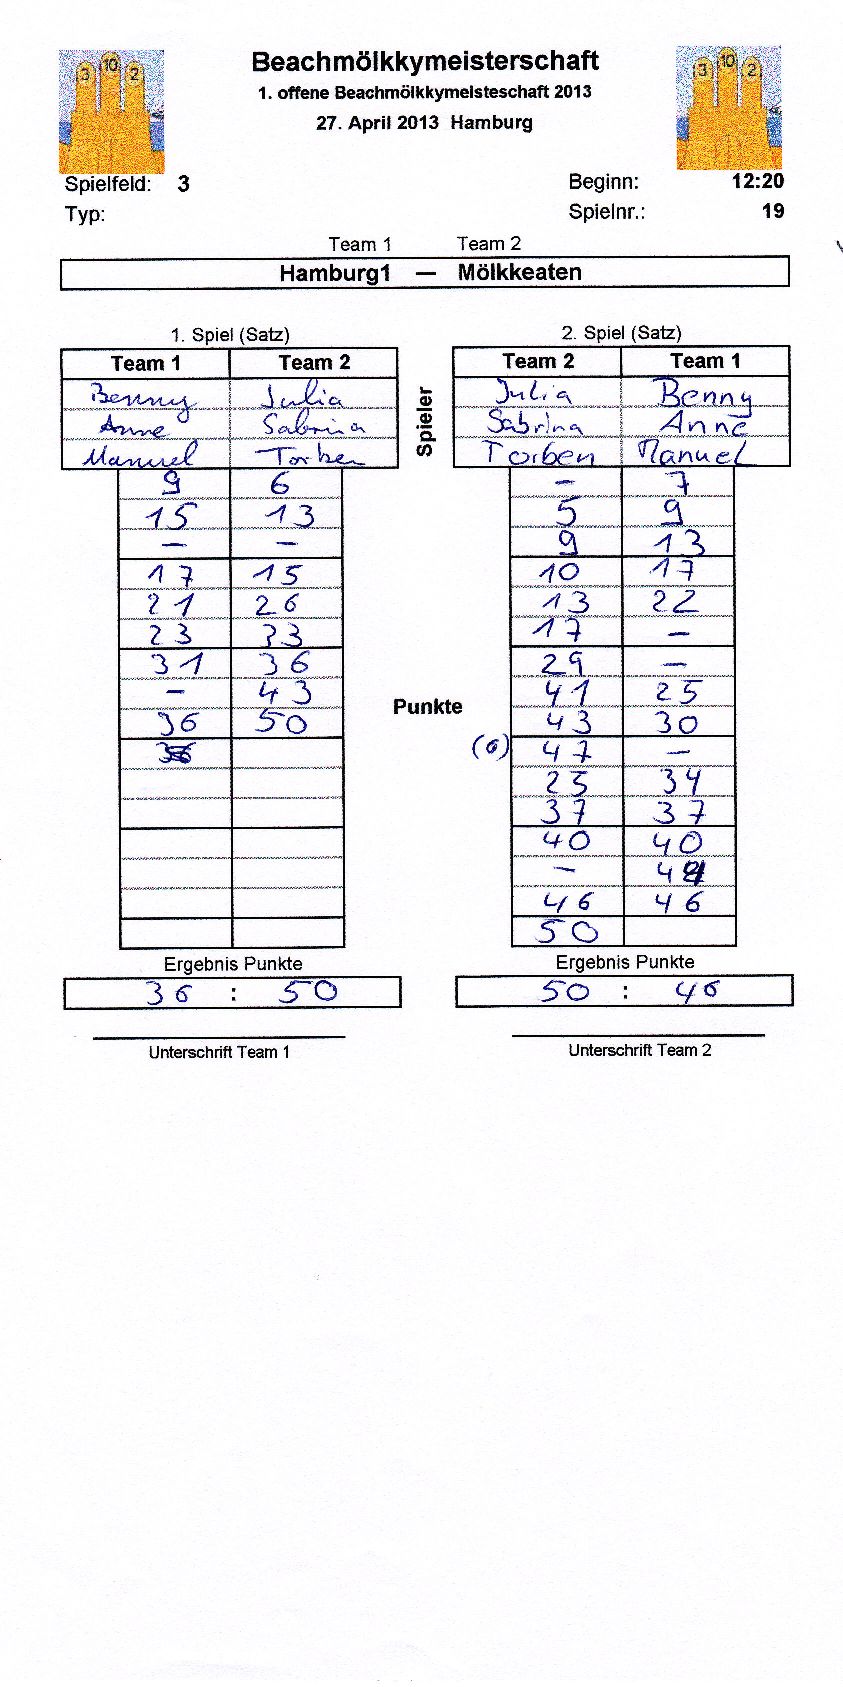 3 10 2
3 10 2
Beachmölkkymeisterschaft
1. offene Beachmölkkymeisteschaft 2013
27. April 2013 Hamburg
Spielfeld: 3
Beginn: 12:20
Typ:
Spielnr.: 19
Team 1 Team 2
Hamburg1 — Mölkkeaten
1. Spiel (Satz)
Team 1 Team 2
Benny Julia
Anne Sabrina
Manuel Torben
9 6
15 13
– –
17 15
21 26
23 33
31 36
– 43
36 50
Ergebnis Punkte
36 : 50
Unterschrift Team 1
Spieler
Punkte
2. Spiel (Satz)
Team 2 Team 1
Julia Benny
Sabrina Anne
Torben Manuel
– 7
5 9
9 13
10 17
13 22
17 –
29 –
41 25
43 30
(6) 47 –
25 34
37 37
40 40
–
46 46
50
Ergebnis Punkte
50 : 46
Unterschrift Team 2